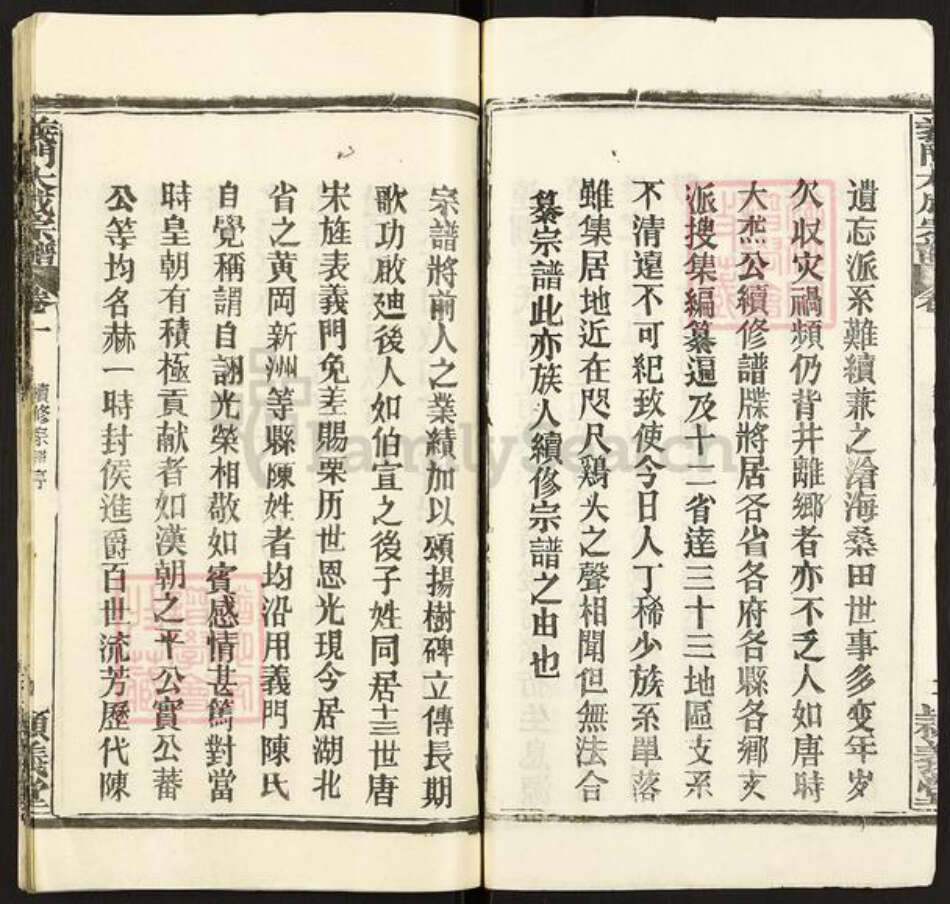 遺忘派系難續兼之滄海桑田世事多变年岁
欠収灾禍頻仍背井離鄉者亦不乏人如唐時
大烋公續修譜牒將居各省各府各縣各鄉支
派搜集編纂遍及十二省達三十三地區支系
不清遠不可紀致使今日人丁稀少族系單落
雖集居地近在咫尺鷄犬之聲相聞但無法合
纂宗譜此亦族人續修宗譜之由也
宗譜將前人之業績加以頌揚樹碑立傳長期
歌功啟廸後人如伯宣之後子姓同居十三世唐
宋旌表義門免差賜栗历世恩光現今居湖北
省之黄岡新洲等縣陳姓者均沿用義門陳氏
自覺稱謂自詡光榮相敬如賓感情甚篤對當
時皇朝有積極貢献者如漢朝之平公實公蕃
公等均名赫一時封侯進爵百世流芳歷代陳
義門大成宗譜
卷一
續修宗譜序
FamilySearch